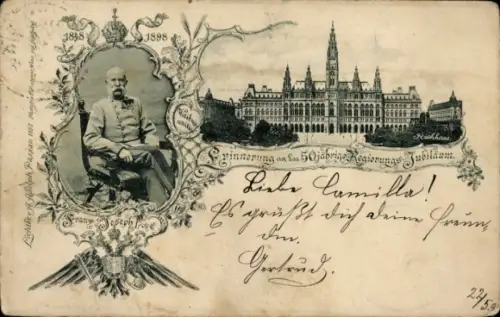 1848 1898
Rathhaus
Erinnerung an das 50jährige Regierungs-Jubiläum.
Franz Joseph I
Liebe Camilla!
Es grüßt dich deine Freun-
din.
Gertrud.
22/5 9